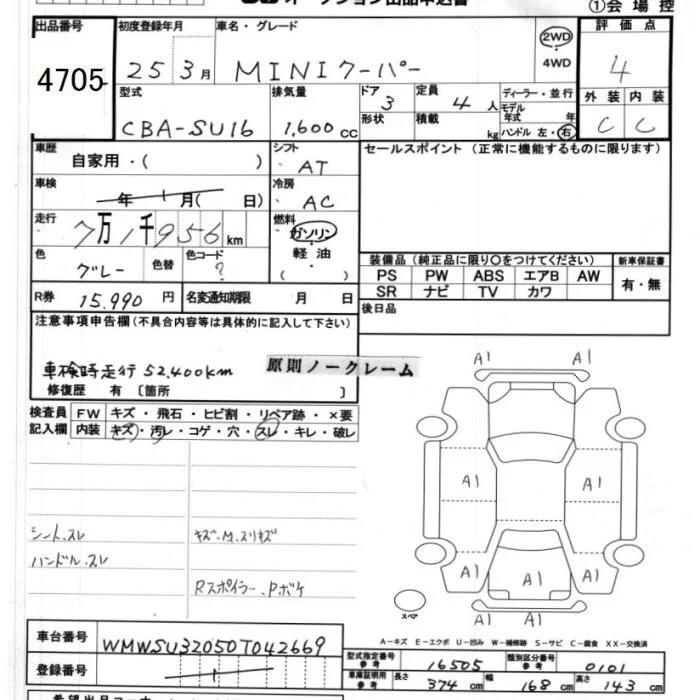 オークション出品申込書
①会場控
出品番号 初度登録年月 車名・グレード 評価点
4705 25 3月 MINIクーパー 2WD 4WD 4
型式 排気量 ドア 定員 ディーラー・並行 外装 内装
CBA-SU16 1,600cc 3 4人 モデル年式 年 C C
形状 積載 kg ハンドル 左・右
車歴 自家用・( ) シフト AT セールスポイント(正常に機能するものに限ります)
車検 年 月( 日) 冷房 AC
走行 7万1千956km 燃料 ガソリン・軽油・( )
色 グレー 色替 色コード ?
装備品(純正品に限り○をつけてください) 新車保証書
PS PW ABS エアB AW 有・無
SR ナビ TV カワ
R券 15.990円 名変通知期限 月 日 後日品
注意事項申告欄(不具合内容等は具体的に記入して下さい)
車検時走行 52,400km
原則ノークレーム
修復歴 有 〔箇所 〕
検査員 FW キズ・飛石・ヒビ割・リペア跡・×要
記入欄 内装 キズ・汚レ・コゲ・穴・スレ・キレ・破レ
シート.スレ キズ.M.スリキズ
ハンドル.スレ
Rスポイラー.Pボケ
A1 A1
A1 A1
A1 A1 A1
A1 A1
スペア
A-キズ E-エクボ U-凹み W-補修跡 S-サビ C-腐食 XX-交換済
車台番号 WMWSU32050T042669
登録番号
型式指定番号 参考 16505 類別区分番号 参考 0101
車庫証明用 参考 長さ 374cm 幅 168cm 高さ 143cm